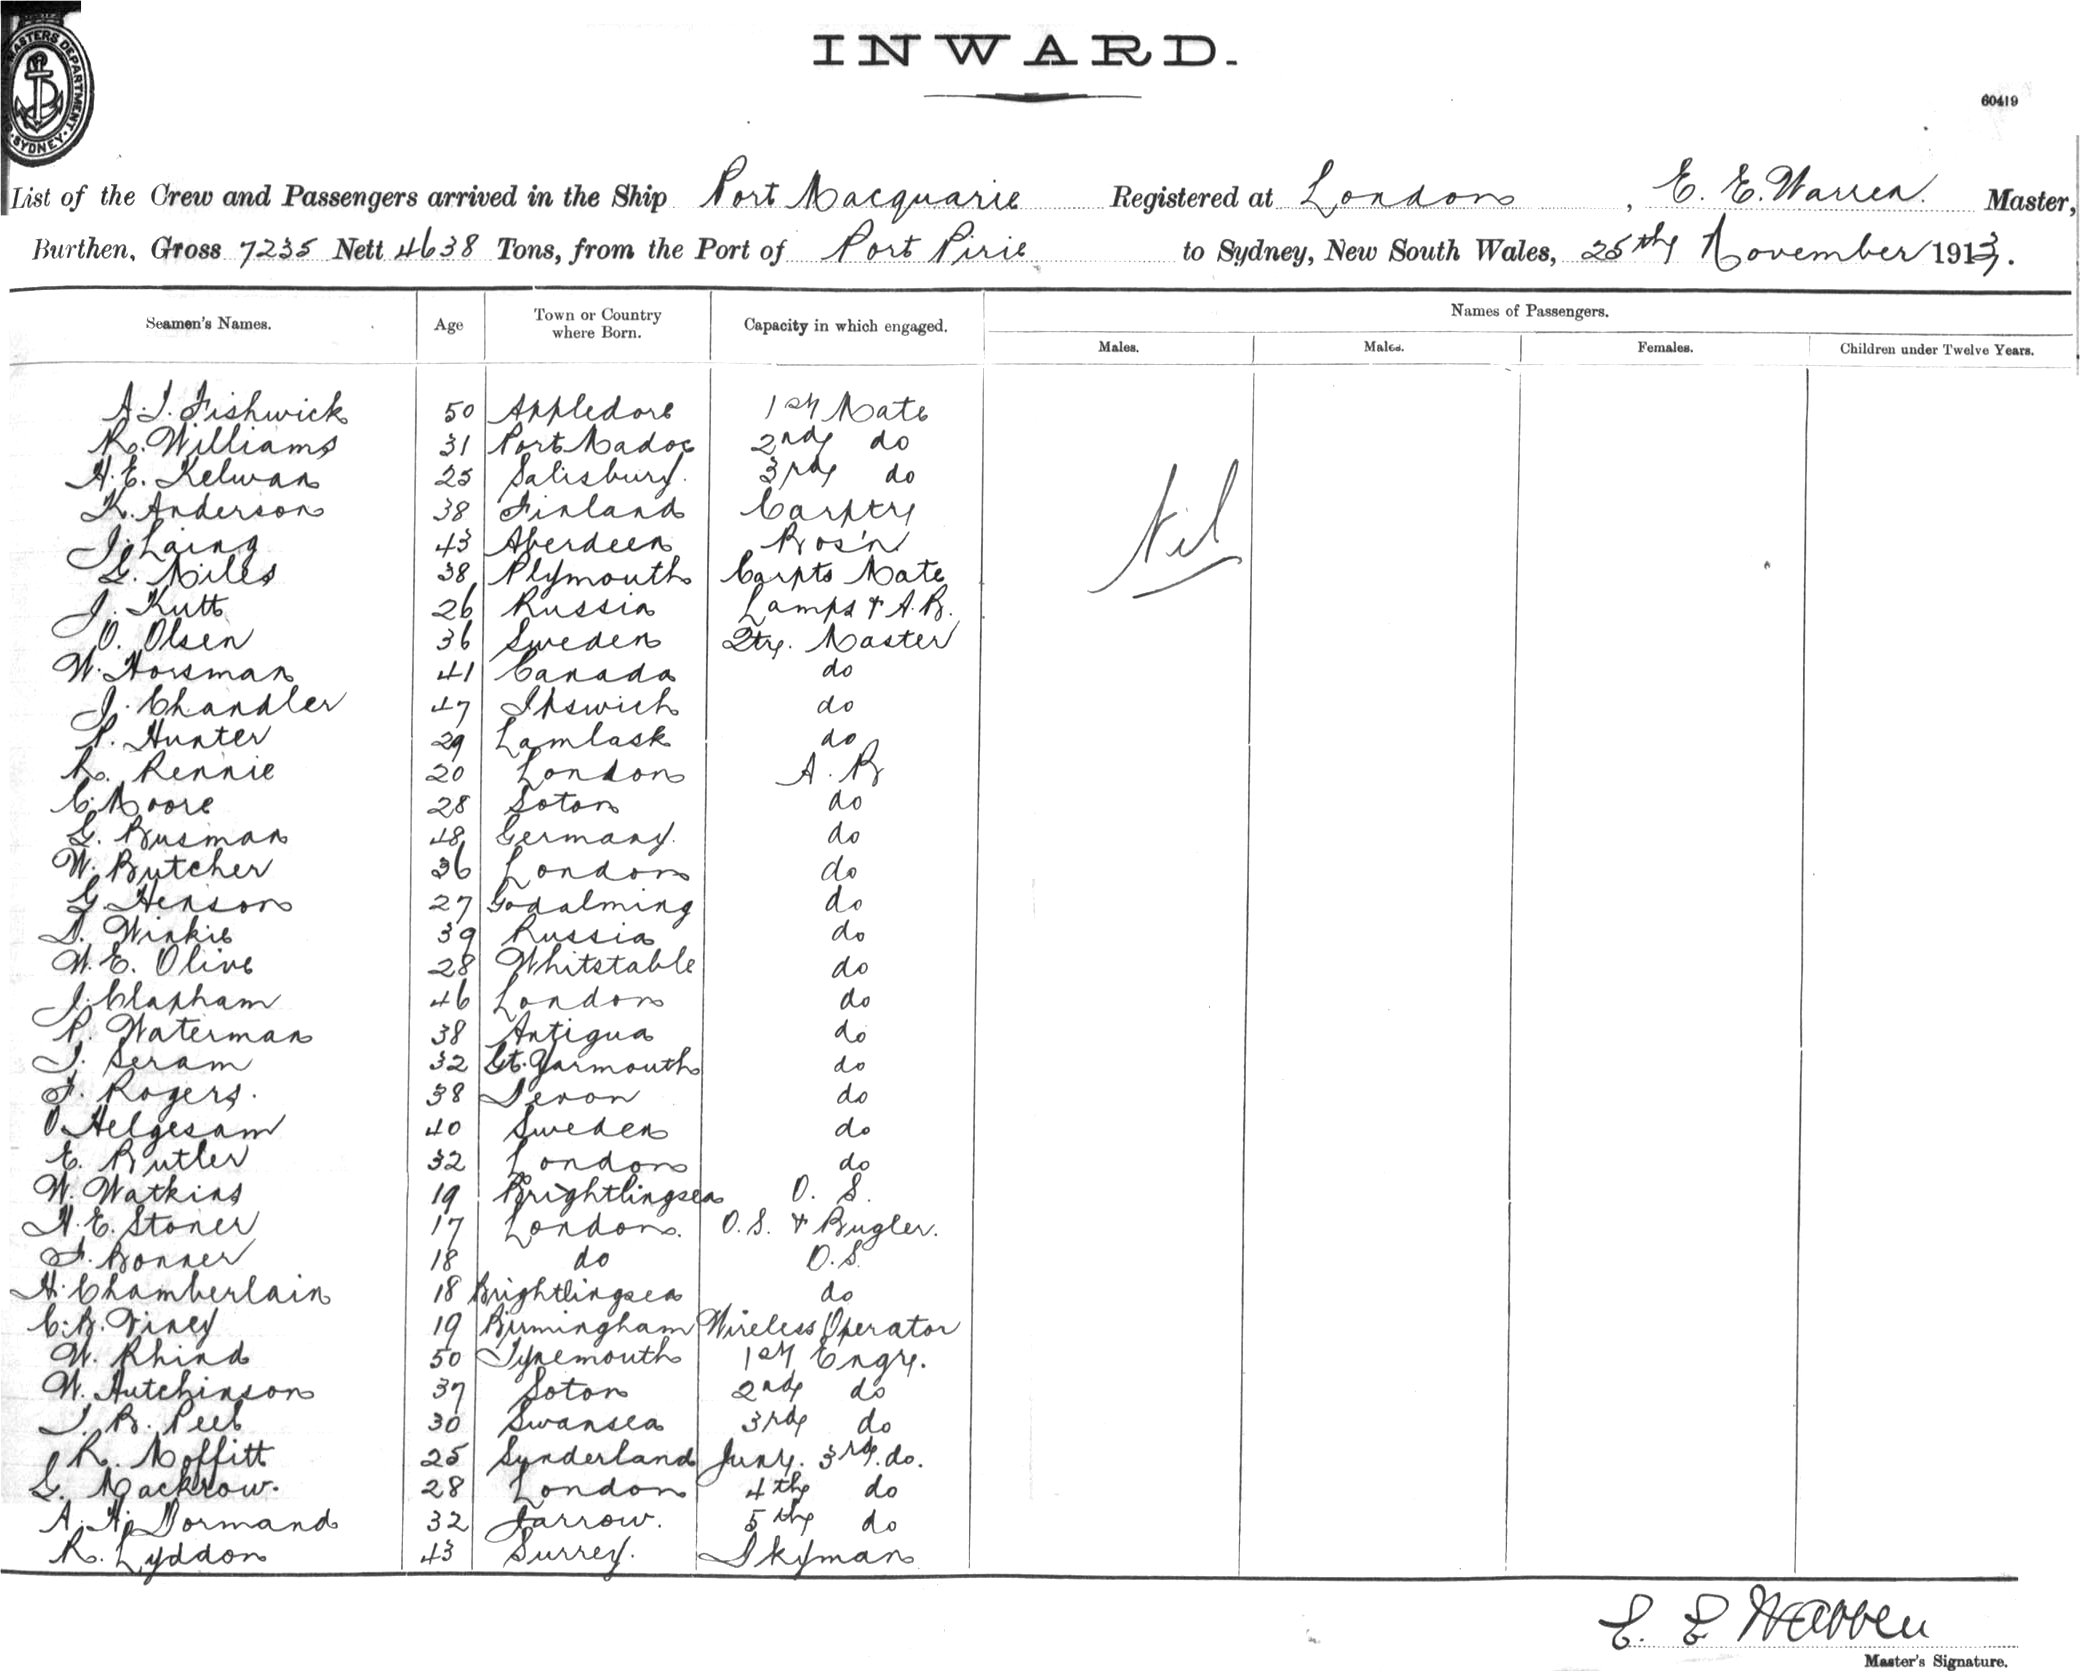 MASTERS DEPARTMENT. SYDNEY.
INWARD.
60419
List of the Crew and Passengers arrived in the Ship Port Macquarie Registered at London, E. E. Warren. Master,
Burthen, Gross 7235 Nett 4638 Tons, from the Port of Port Pirie to Sydney, New South Wales, 25th November 1913.
Seamen's Names. Age Town or Country where Born. Capacity in which engaged. Names of Passengers.
Males. Males. Females. Children under Twelve Years.
A. J. Fishwick 50 Appledore 1st Mate
R. Williams 31 Port Madoc 2nd do
H. E. Kelwan 25 Salisbury. 3rd do
K. Anderson 38 Finland Carptr
J. Laing 43 Aberdeen Bos'n
G. Miles 38 Plymouth Carpts Mate
J. Kutt 26 Russia Lamps & A.B.
O. Olsen 36 Sweden Qtr. Master
W. Horsman 41 Canada do
J. Chandler 47 Ipswich do
P. Hunter 29 Lamlask do
R. Rennie 20 London A. B
C. Moore 28 Soton do
G. Busman 48 Germany. do
W. Butcher 36 London do
G. Henson 27 Godalming do
D. Winkie 39 Russia do
W. E. Olive 28 Whitstable do
J. Clapham 46 London do
P. Waterman 38 Antigua do
J. Seram 32 Gt. Yarmouth do
F. Rogers. 38 Devon do
O Helgesam 40 Sweden do
E. Butler 32 London do
W. Watkins 19 Brightlingsea O. S.
H. E. Stoner 17 London. O.S. & Bugler.
F. Bonner 18 do O.S.
H. Chamberlain 18 Brightlingsea do
C. B. Viney 19 Birmingham Wireless Operator
W. Rhind 50 Tynemouth 1st Engr.
W. Hutchinson 37 Soton 2nd do
J. B. Peel 30 Swansea 3rd do
R. Moffitt 25 Sunderland Junr. 3rd. do.
G. Mackrow. 28 London 4th do
A. H. Dormand 32 Jarrow. 5th do
R. Lyddon 43 Surrey. Dkyman
Nil
E. E Warren
Master's Signature.